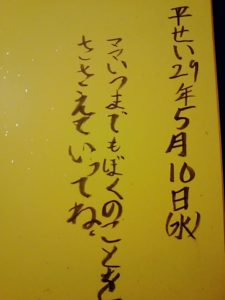 平せい29年5月10日(水)
ママいつまでもぼくのことを
ささえていってね。